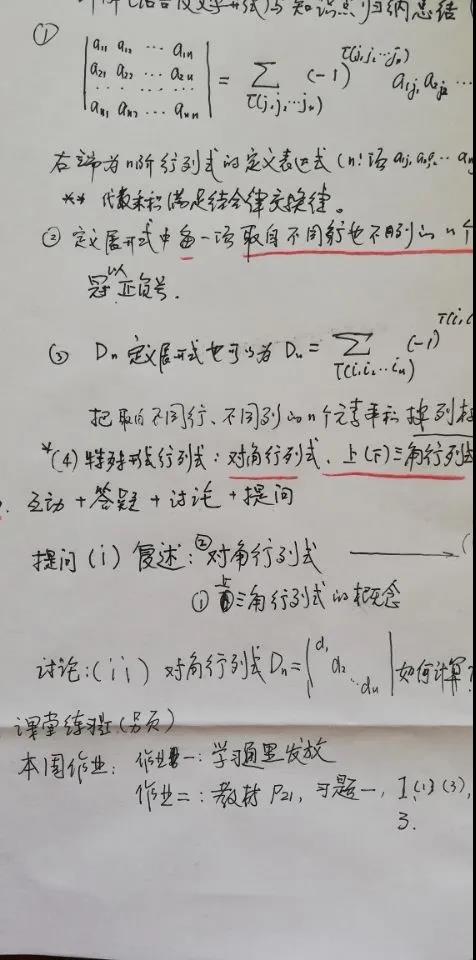 与知识点归纳总结(
①
a₁₁ a₁₂ … a₁ₙ
a₂₁ a₂₂ … a₂ₙ
… … … …
aₙ₁ aₙ₂ … aₙₙ
= ∑ (-1) τ(j₁j₂…jₙ) a₁j₁ a₂j₂ …
τ(j₁j₂…jₙ)
右端为n阶行列式的定义表达式(n!项
** 代数乘积满足结合律交换律。
② 定义展开式中每一项取自不同行也不同列的n个
冠以正负号.
③ Dₙ定义展开式也可以为 Dₙ = ∑ (-1) τ(i₁i
τ(i₁i₂…iₙ)
把取自不同行、不同列的n个元素乘积按列
*(4) 特殊形式行列式: 对角行列式、上(下)三角行列式
互动+答疑+讨论+提问
提问(i) 复述: ②对角行列式 ⟶ (
① 上三角行列式的概念
讨论:(ii) 对角行列式Dₙ= | d₁ d₂ … dₙ | 如何计算?
课堂练习(另页)
本周作业: 作业一: 学习通里发放
作业二: 教材 P21, 习题一, 1(1)(3),
3.